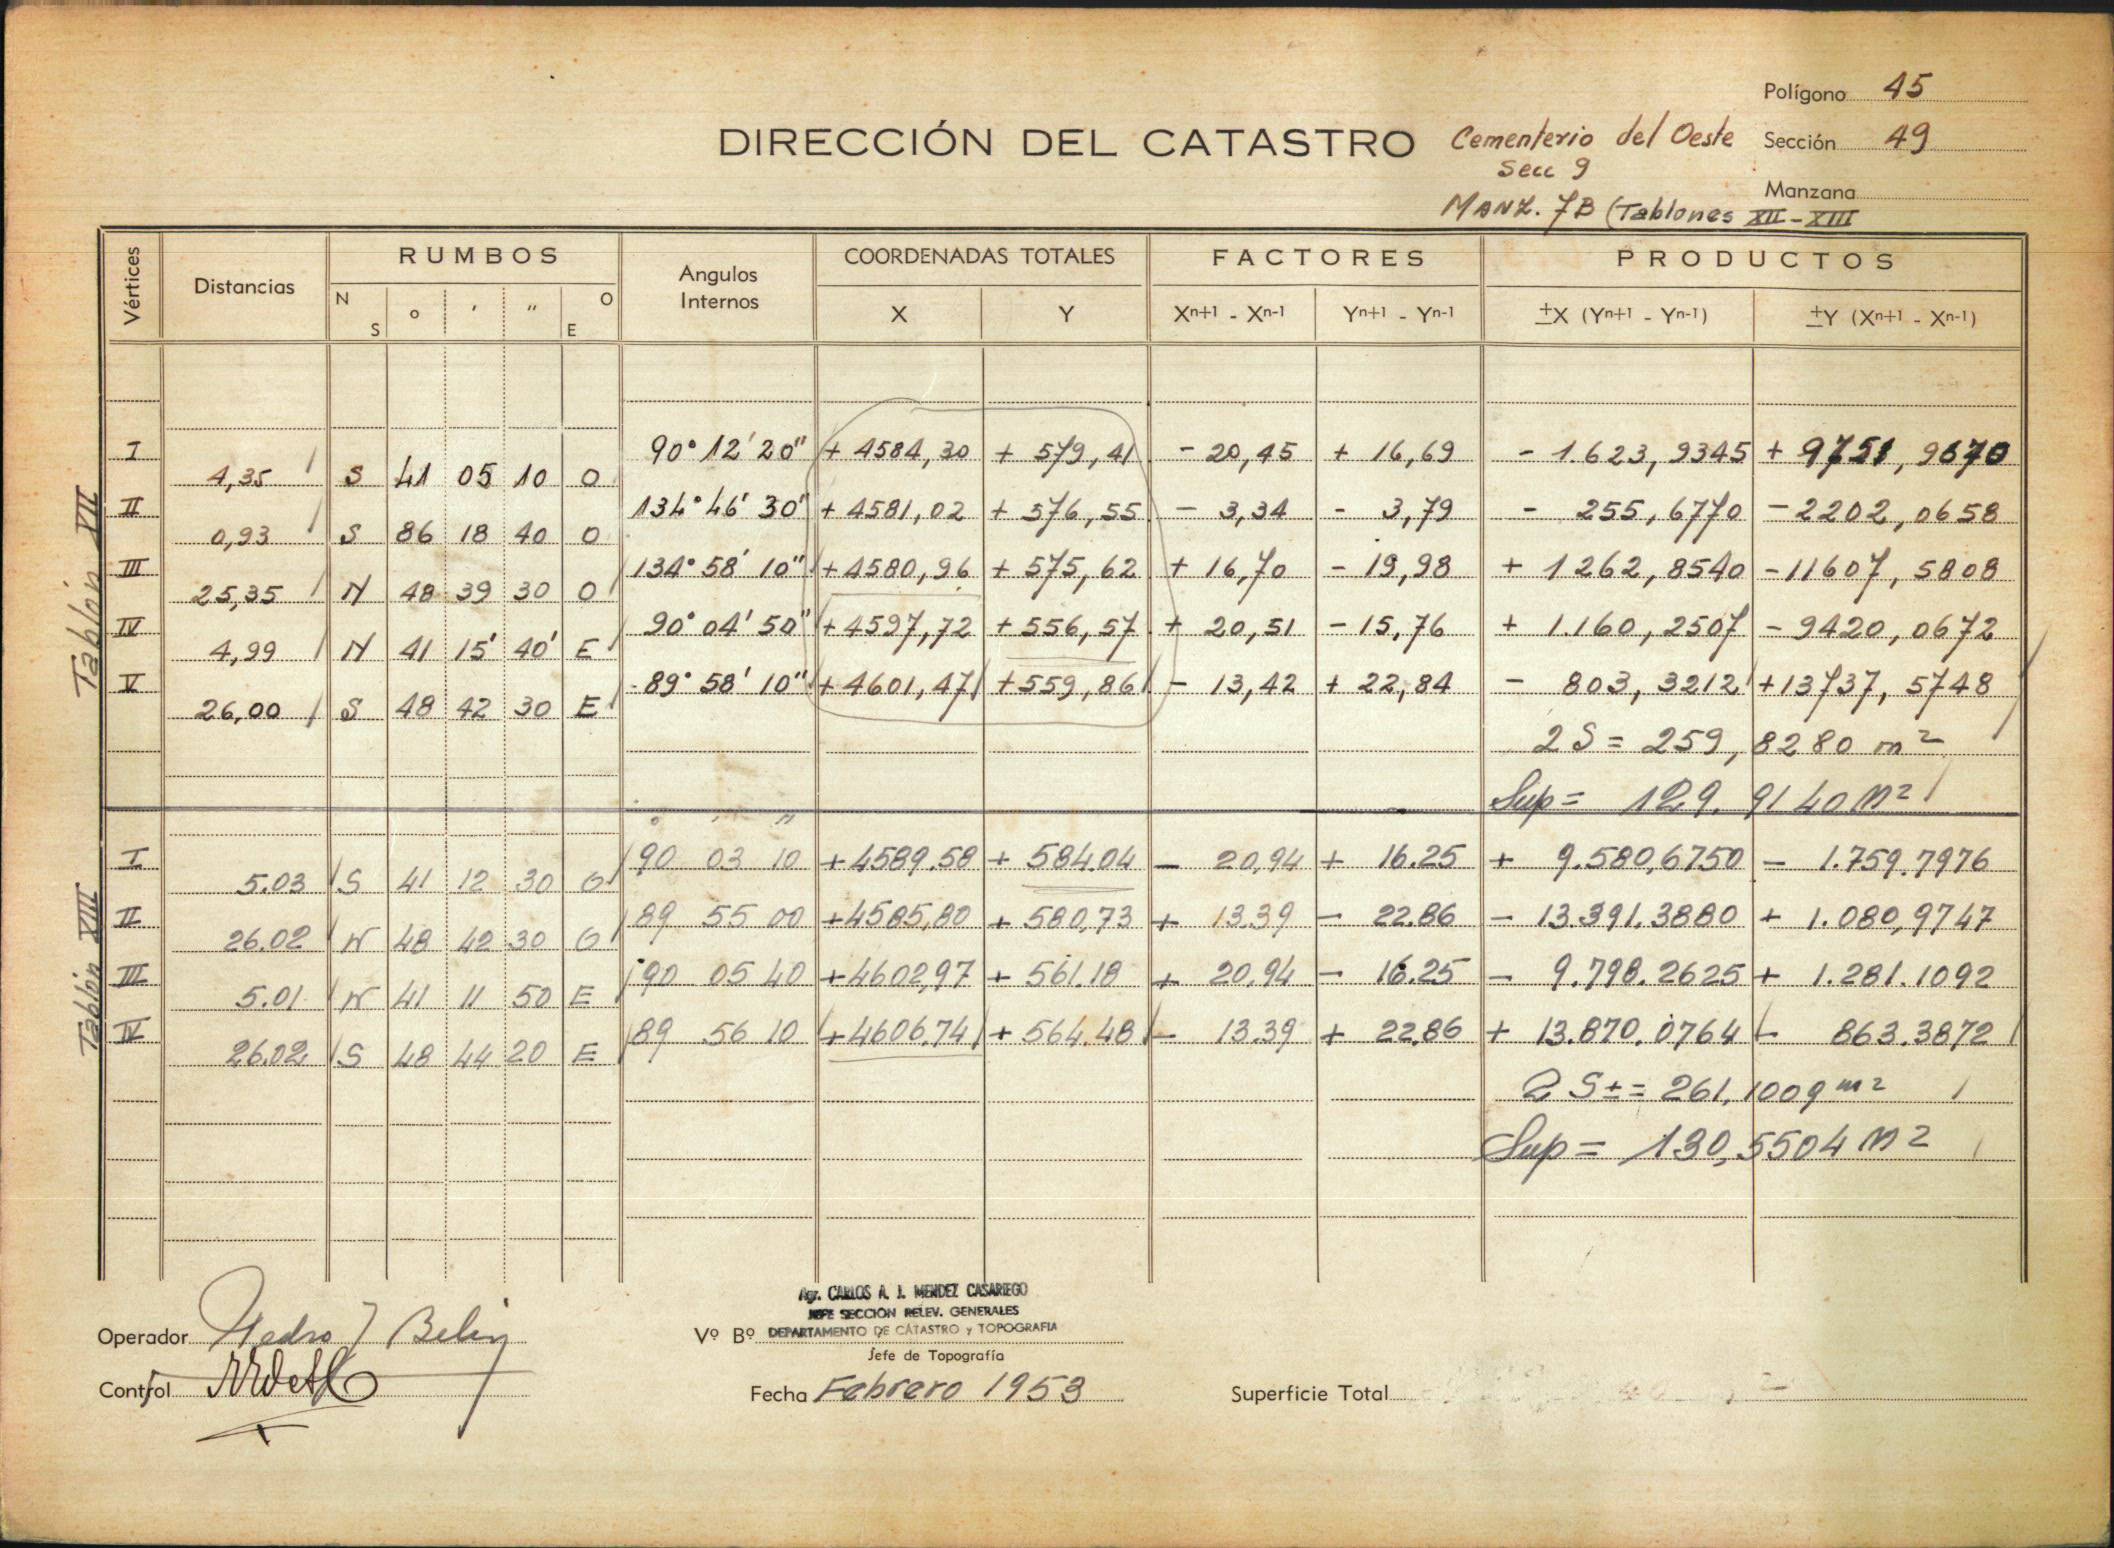 Polígono 45
DIRECCIÓN DEL CATASTRO Cementerio del Oeste Sección 49
Secc 9
Manzana
MANZ. 7B (Tablones XII-XIII
Vértices Distancias RUMBOS Angulos Internos COORDENADAS TOTALES FACTORES PRODUCTOS
N S ° ' " O E X Y Xn+1 - Xn-1 Yn+1 - Yn-1 ±X (Yn+1 - Yn-1) ±Y (Xn+1 - Xn-1)
Tablón XII
I 90° 12' 20" + 4584,30 + 579,41 - 20,45 + 16,69 - 1.623,9345 + 9751,9670
4,35 S 41 05 10 O
II 134° 46' 30" + 4581,02 + 576,55 - 3,34 - 3,79 - 255,6770 - 2202,0658
0,93 S 86 18 40 O
III 134° 58' 10" + 4580,96 + 575,62 + 16,70 - 19,98 + 1262,8540 - 11607,5808
25,35 N 48 39 30 O
IV 90° 04' 50" + 4597,72 + 556,57 + 20,51 - 15,76 + 1.160,2507 - 9420,0672
4,99 N 41 15' 40' E
V 89° 58' 10" + 4601,47 + 559,86 - 13,42 + 22,84 - 803,3212 + 13737,5748
26,00 S 48 42 30 E
2 S = 259,8280 m²
Sup = 129.9140 m²
° ' "
Tablón XIII
I 90 03 10 + 4589.58 + 584.04 - 20,94 + 16.25 + 9.580,6750 - 1.759.7976
5.03 S 41 12 30 O
II 89 55 00 + 4585,80 + 580,73 + 13.39 - 22.86 - 13.391.3880 + 1.080,9747
26.02 N 48 42 30 O
III 90 05 40 + 4602,97 + 561.18 + 20,94 - 16.25 - 9.798.2625 + 1.281.1092
5.01 N 41 11 50 E
IV 89 56 10 + 4606.74 + 564.48 - 13.39 + 22.86 + 13.870.0764 - 863.3872
26.02 S 48 44 20 E
2 S ± = 261,1009 m²
Sup = 130,5504 m²
Agr. CARLOS A. J. MENDEZ CASARIEGO
JEFE SECCIÓN RELEV. GENERALES
Operador Vº Bº DEPARTAMENTO DE CATASTRO y TOPOGRAFIA
Jefe de Topografía
Control Fecha Febrero 1953 Superficie Total